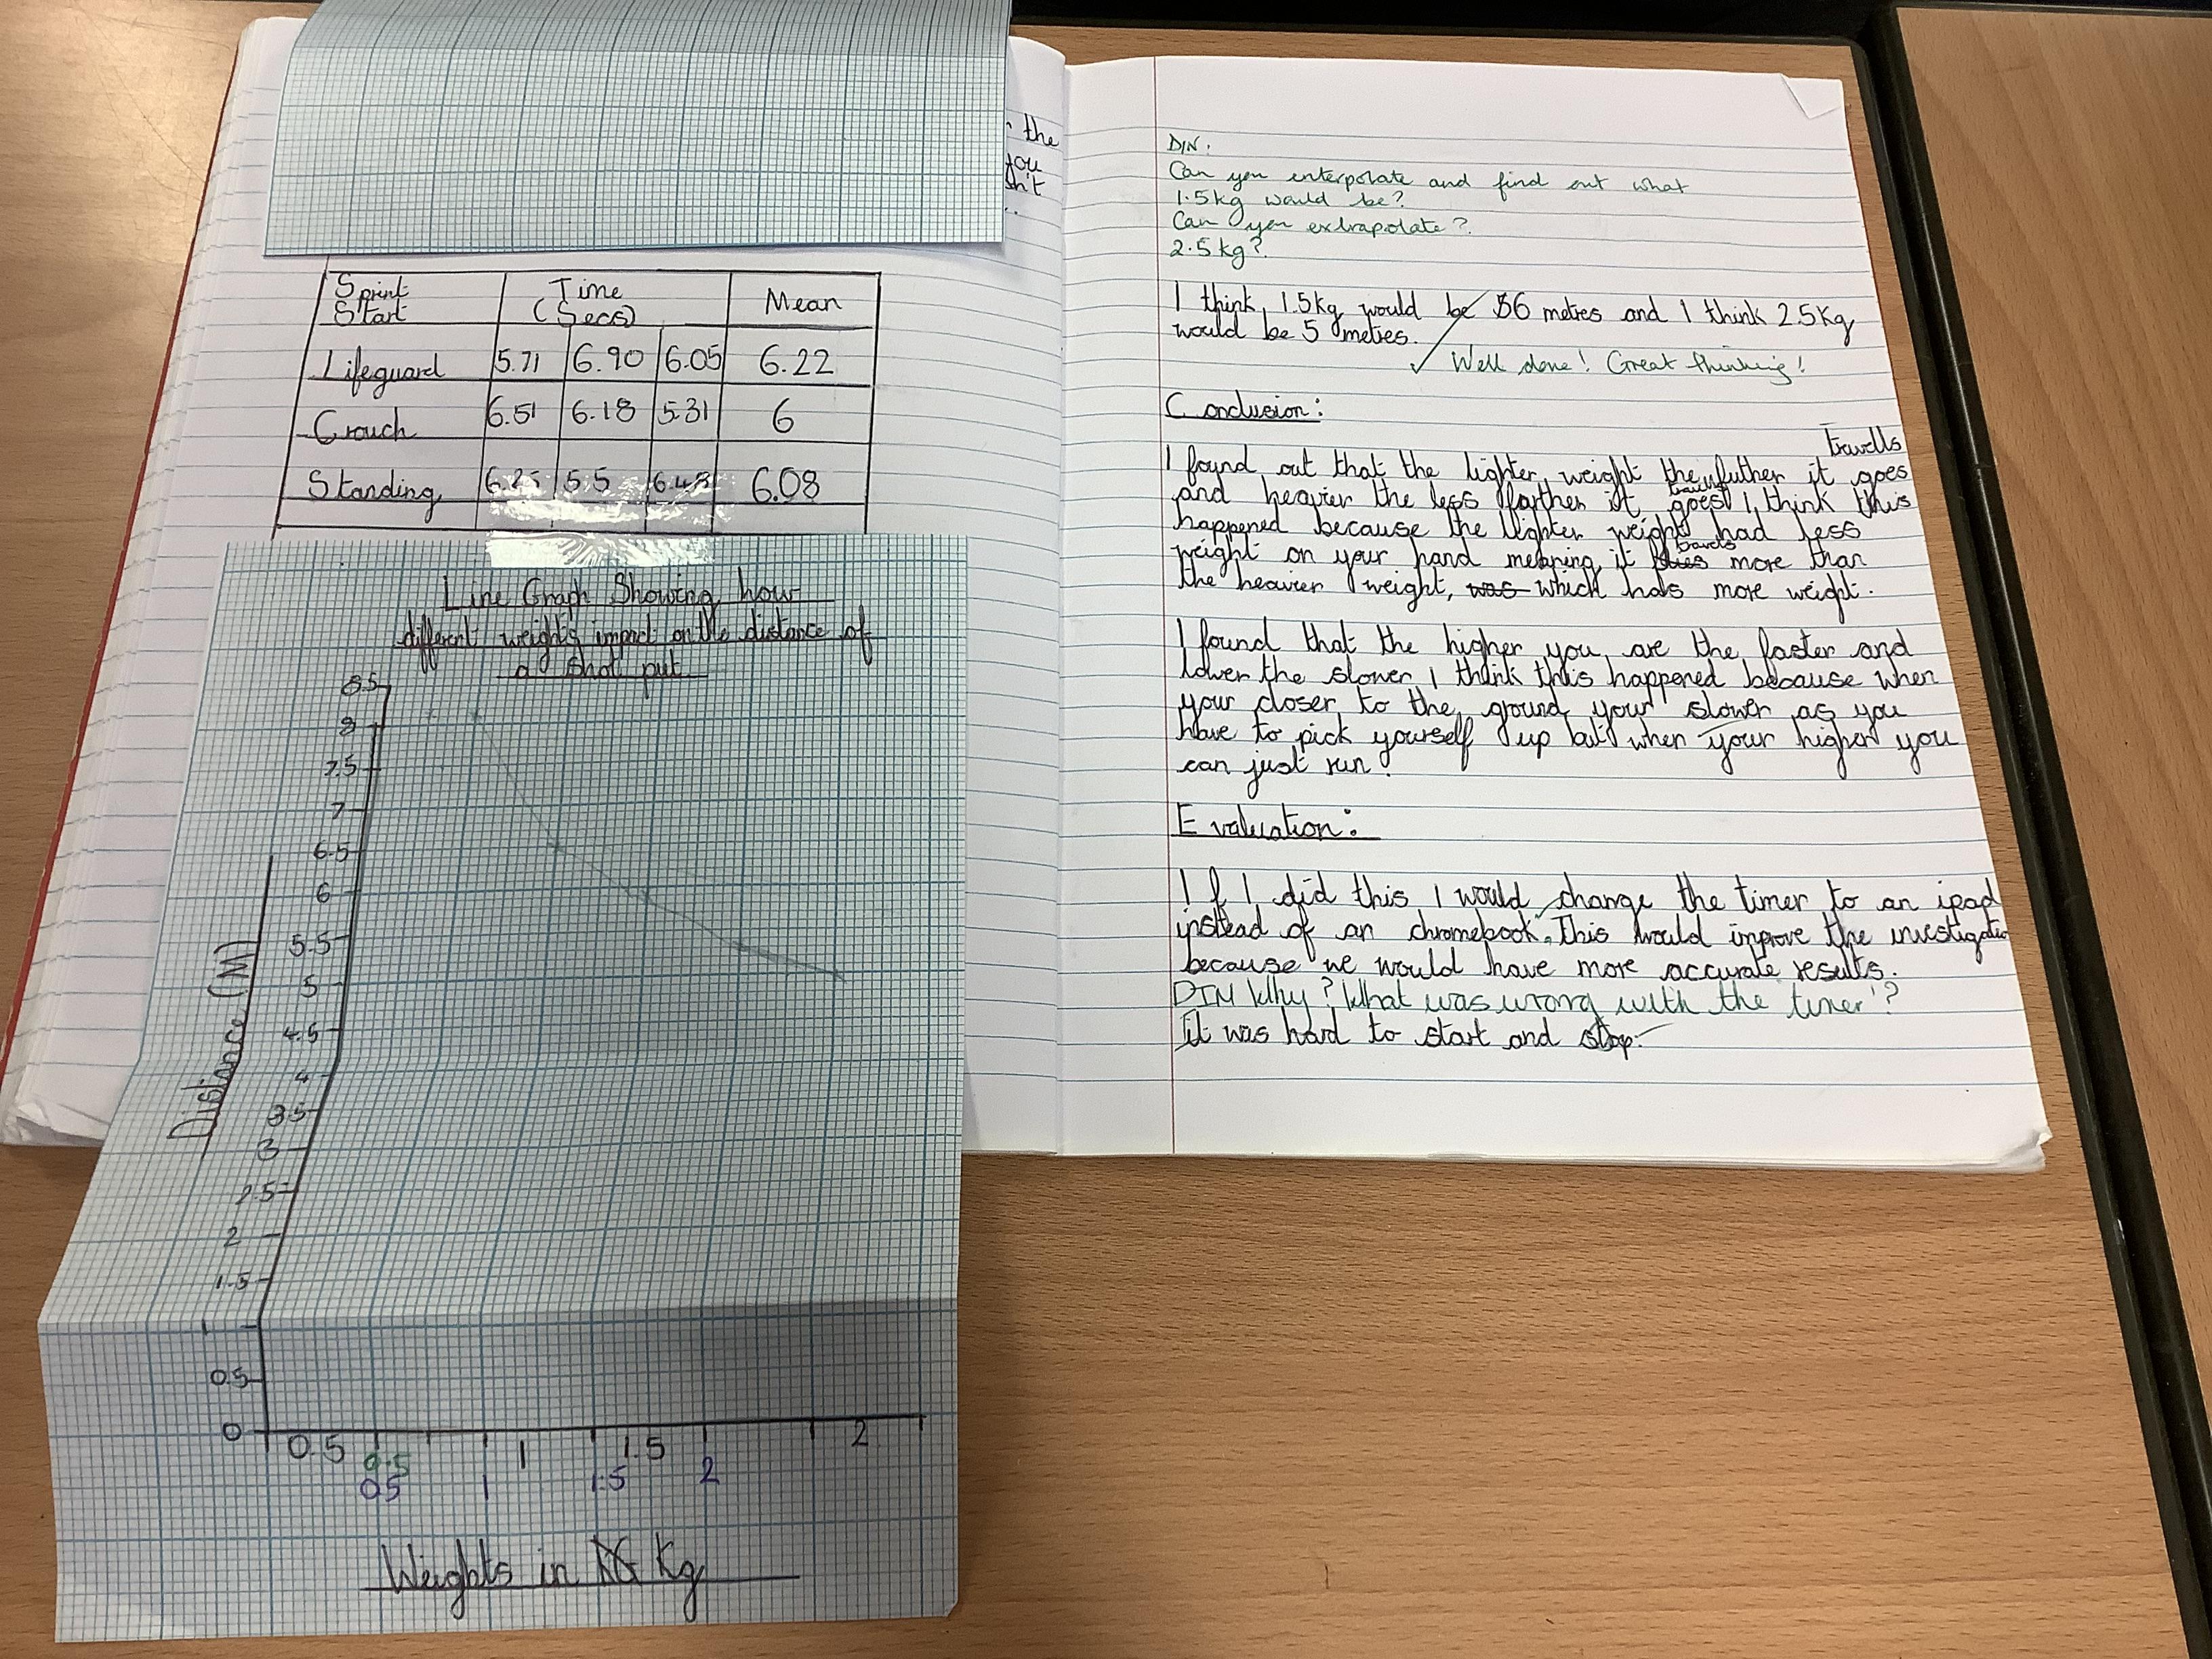 the
you
Sprint Start Time (Secs) Mean
Lifeguard 5.71 6.90 6.05 6.22
Crouch 6.51 6.18 5.31 6
Standing 6.25 5.5 6.48 6.08
Line Graph Showing how
different weights impact on the distance of
a shot put
Distance (M)
8.5
8
7.5
7
6.5
6
5.5
5
4.5
4
3.5
3
2.5
2
1.5
1
0.5
0
0.5 1 1.5 2
0.5
0.5 1 1.5 2
Weights in Kg
DIN.
Can you interpolate and find out what
1.5kg would be?
Can you extrapolate?
2.5kg?
I think 1.5kg would be 6 metres and I think 2.5Kg
would be 5 metres.
Well done! Great thinking!
Conclusion:
travells
I found out that the lighter weight the futher it goes
and heavier the less farther it goes I think this
happened because the lighter weight had less
weight on your hand meaning it travels more than
the heavier weight, was which has more weight.
I found that the higher you are the faster and
lower the slower I think this happened because when
your closer to the ground your slower as you
have to pick yourself up but when your higher you
can just run.
Evaluation:
If I did this I would change the timer to an ipad
instead of an chromebook. This would improve the investigatio
because we would have more accurate results.
DIN Why? What was wrong with the timer?
It was hard to start and stop.